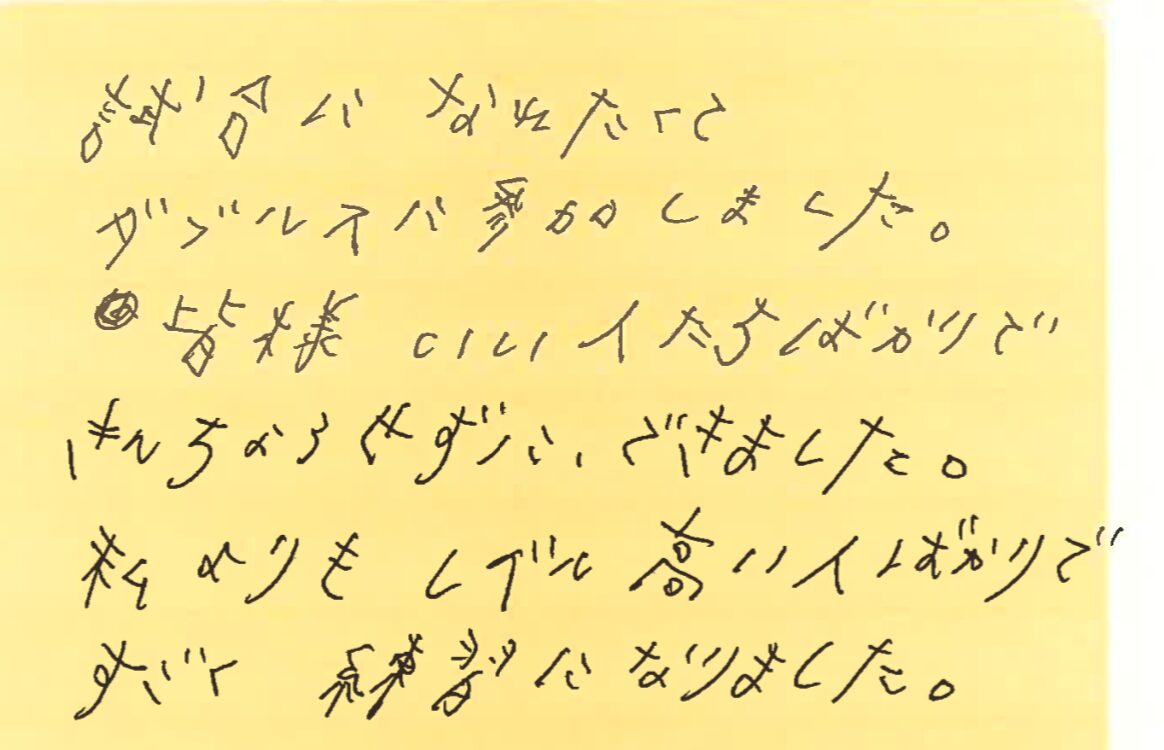 試合に なれたくて
ダブルスに参加しました。
皆様 いい人たちばかりで
きんちょうせずに、できました。
私よりも レベル高い人ばかりで
すごく 練習になりました。